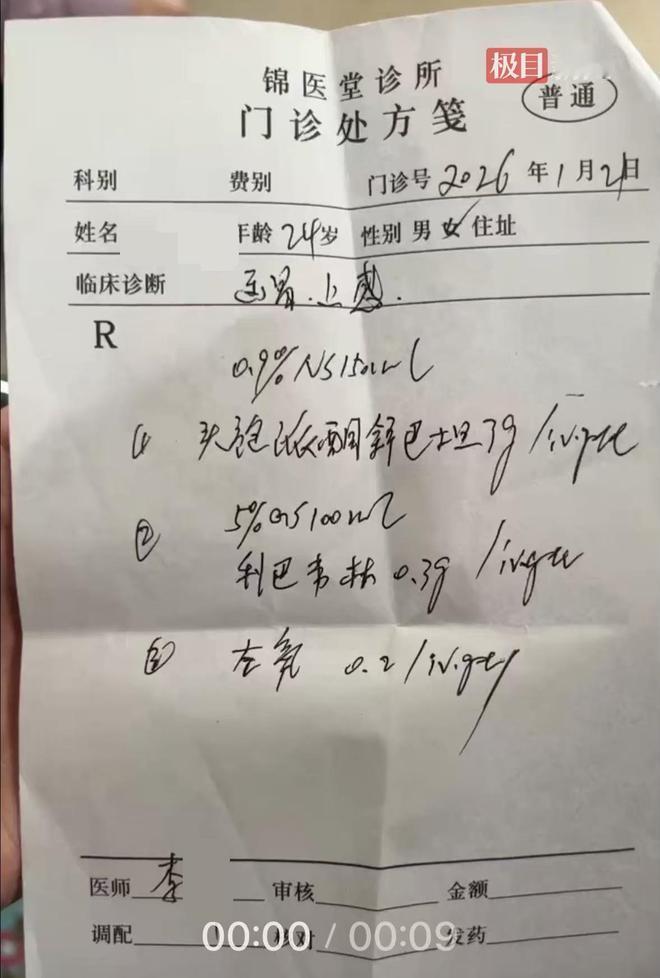 极目
锦医堂诊所
普通
门诊处方笺
科别 费别 门诊号 2026 年 1 月 21 日
姓名 年龄 24 岁 性别 男 女 住址
临床诊断 上感.
R
0.9% NS 150ml
① 头孢哌酮舒巴坦 3g / iv.gtt
② 5% GS 100ml
利巴韦林 0.3g / iv.gtt
③ 左氧 0.2 / iv.gtt
医师 李 审核 金额
调配 核对 发药
00:00 / 00:09